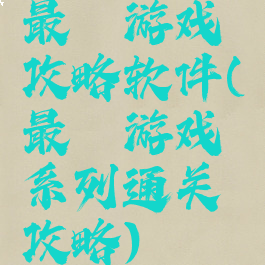 最 游戏
攻略软件(
最 游戏
系列通关
攻略)